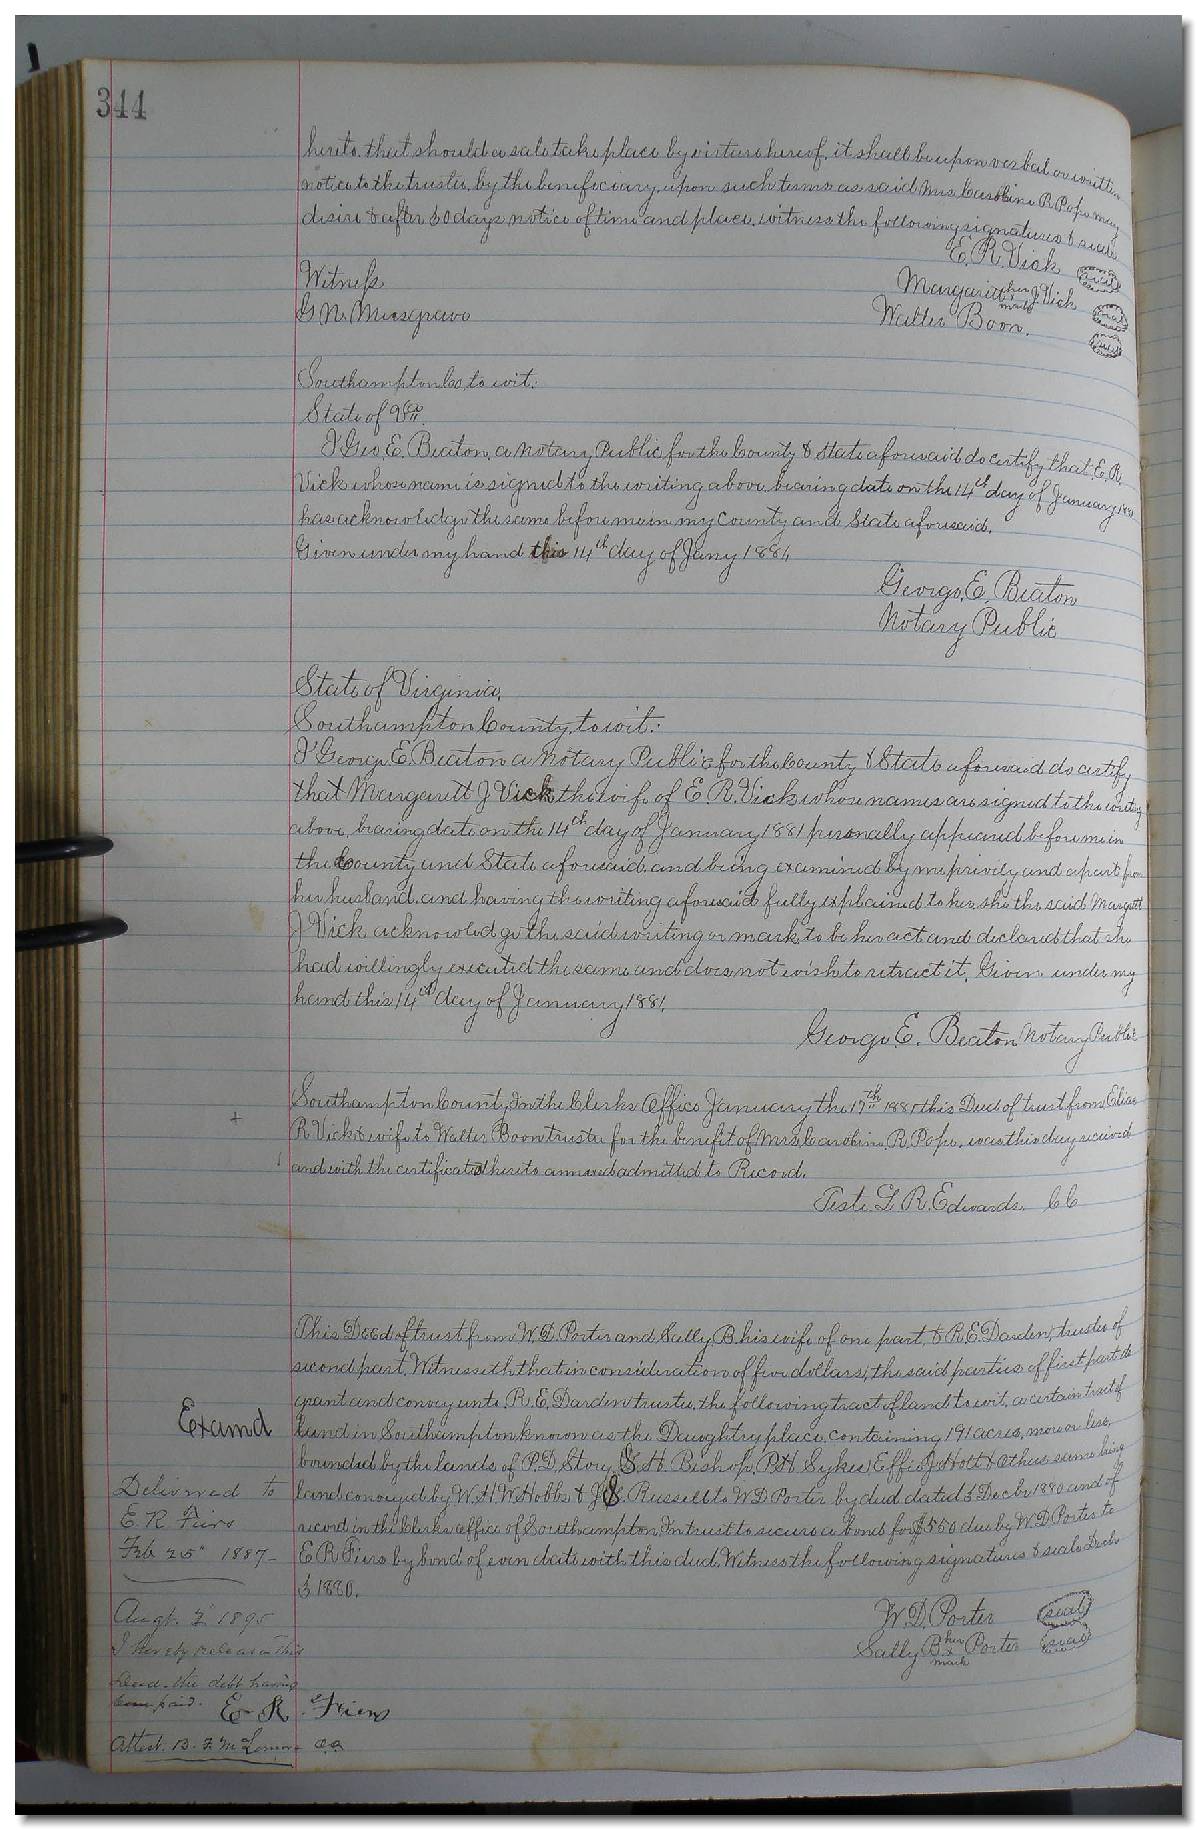 344
hereto, that should a sale take place by virture hereof, it shall be upon verbal or written
notice to the trustee, by the beneficiary, upon such terms as said Mrs Caroline R. Pope may
desire & after 60 days, notice of time and place, witness the following signatures & seals
E. R. Vick seal
Witness
Margarett her J. Vick seal
mark
G N. Musgrave
Walter Boon. seal
Southampton Co, to wit:
State of Va.
I Geo E. Beaton, a Notary Public for the County & State aforesaid do certify that E. R.
Vick whose name is signed to the writing above, bearing date on the 14th day of January 1881
has acknowledge the same before me in my County and State aforesaid.
Given under my hand this 14th day of Jany 1881
George, E. Beaton
Notary Public
State of Virginia,
Southampton County, to wit:
I George E. Beaton a Notary Public for the County & State aforesaid do certify
that Margarett J Vick the wife of E. R. Vick whose names are signed to the writing
above, bearing date on the 14th day of January 1881 personally appeared before me in
the County and State aforesaid, and being examined by me privily and apart from
her husband, and having the writing aforesaid fully explained to her, she the said Margrett
J Vick acknowledge the said writing or mark to be her act and declared that she
had willingly executed the same and does not wish to retract it, Given under my
hand this 14th day of January 1881,
George E. Beaton Notary Public
Southampton County, In the Clerks Office January the 17th 1881 this Deed of trust from Elias
R. Vick & wife to Walter Boon trustee for the benefit of Mrs Caroline R. Pope, was this day received
and with the certificates thereto annexed admitted to Record.
Teste. L R. Edwards. CC
This Deed of trust from W. D. Porter and Sally B. his wife of one part, & R. E. Darden, trustee of
second part, Witnesseth that in consideration of five dollars, the said parties of first part do
grant and convey unto R. E. Darden trustee, the following tract of land to wit, a certain tract of
Examd
land in Southampton known as the Daughtry place, containing 191 acres, more or less,
bounded by the lands of P. D. Story, S. H. Bishop, R. H Sykes, Effie J. Holt & others same being
Delivered to
land conveyed by W. H. W. Hobbs & J. S. Russell to W D Porter by deed dated 3 Decbr 1880 and of
E. R. Fiers
record in the Clerks office of Southampton, In trust to secure a bond for $550 due by W. D. Porter to
Feb 25" 1887-
E R Fiers by bond of even date with this deed, Witness the following signatures & seals Decbr
3 1880.
Augt. 2" 1895
W. D. Porter seal
I hereby release this
Sally B. her x Porter seal
mark
Deed the debt having
been paid.
E R. Fiers
Attest. B. F. McLemore CC